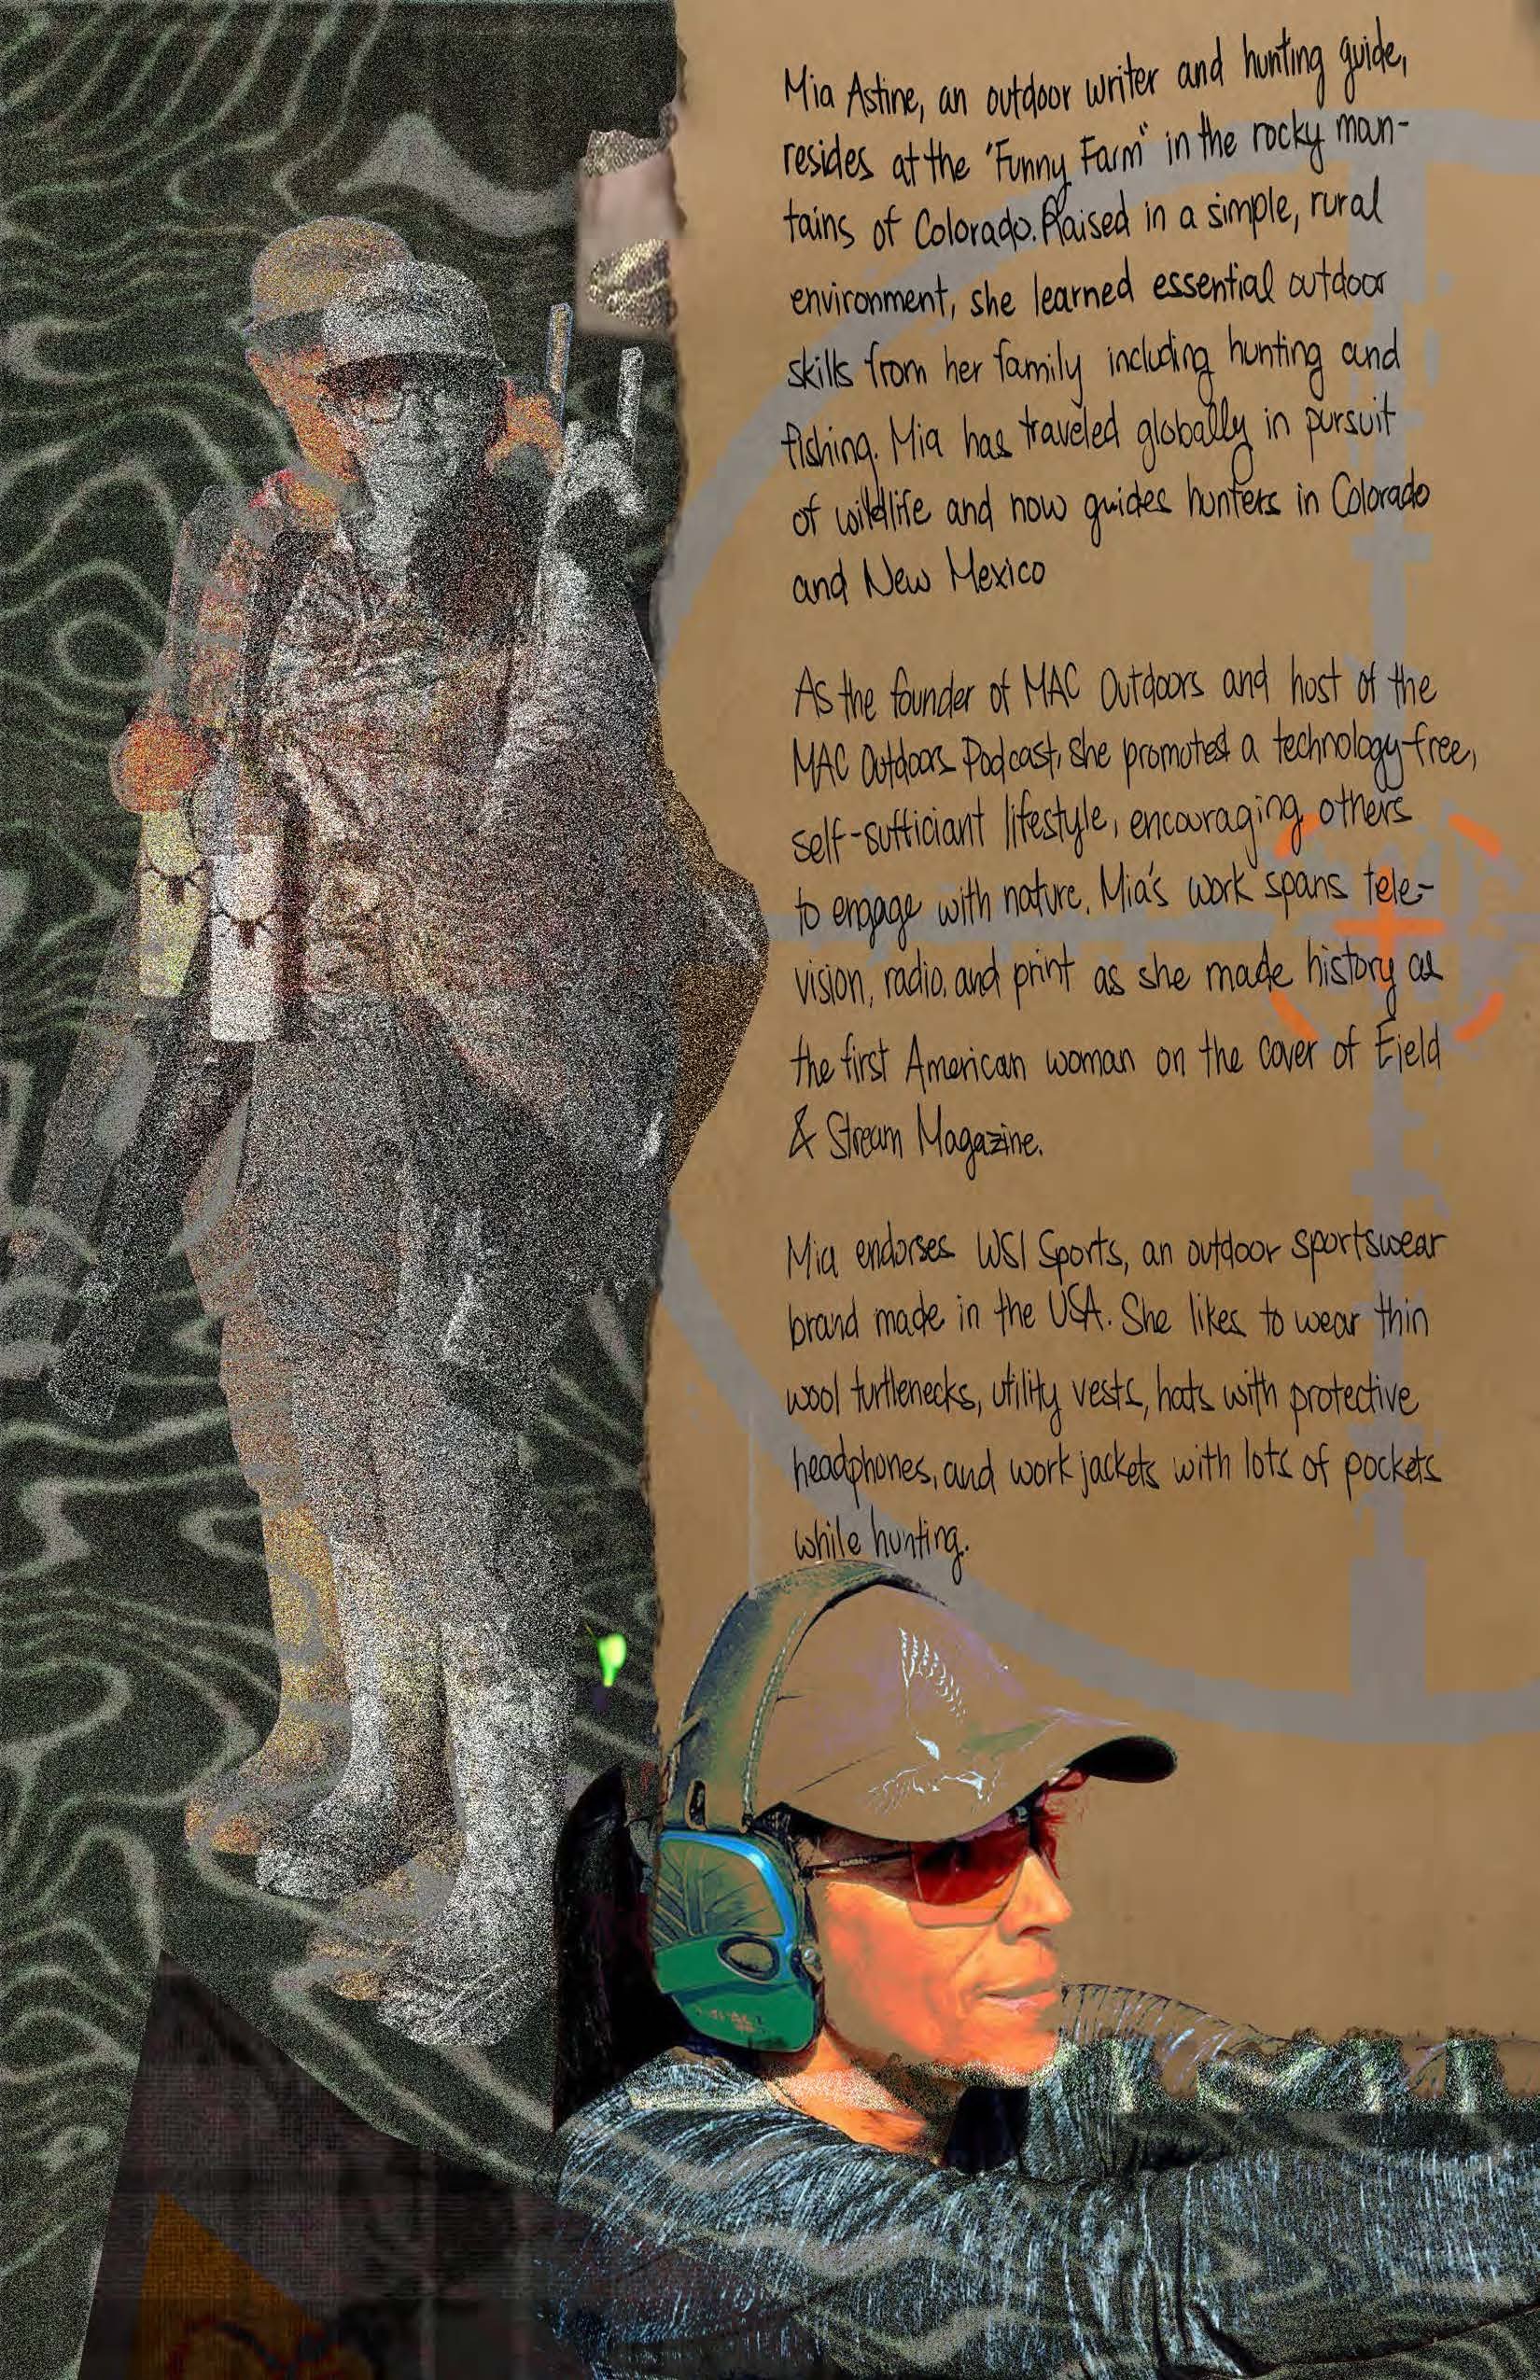 Mia Astine, an outdoor writer and hunting guide,
resides at the "Funny Farm" in the rocky moun-
tains of Colorado. Raised in a simple, rural
environment, she learned essential outdoor
skills from her family including hunting and
fishing. Mia has traveled globally in pursuit
of wildlife and now guides hunters in Colorado
and New Mexico
As the founder of MAC Outdoors and host of the
MAC Outdoors Podcast, she promotes a technology-free,
self-sufficiant lifestyle, encouraging others
to engage with nature. Mia's work spans tele-
vision, radio, and print as she made history as
the first American woman on the cover of Field
& Stream Magazine.
Mia endorses WSI Sports, an outdoor sportswear
brand made in the USA. She likes to wear thin
wool turtlenecks, utility vests, hats with protective
headphones, and work jackets with lots of pockets
while hunting.